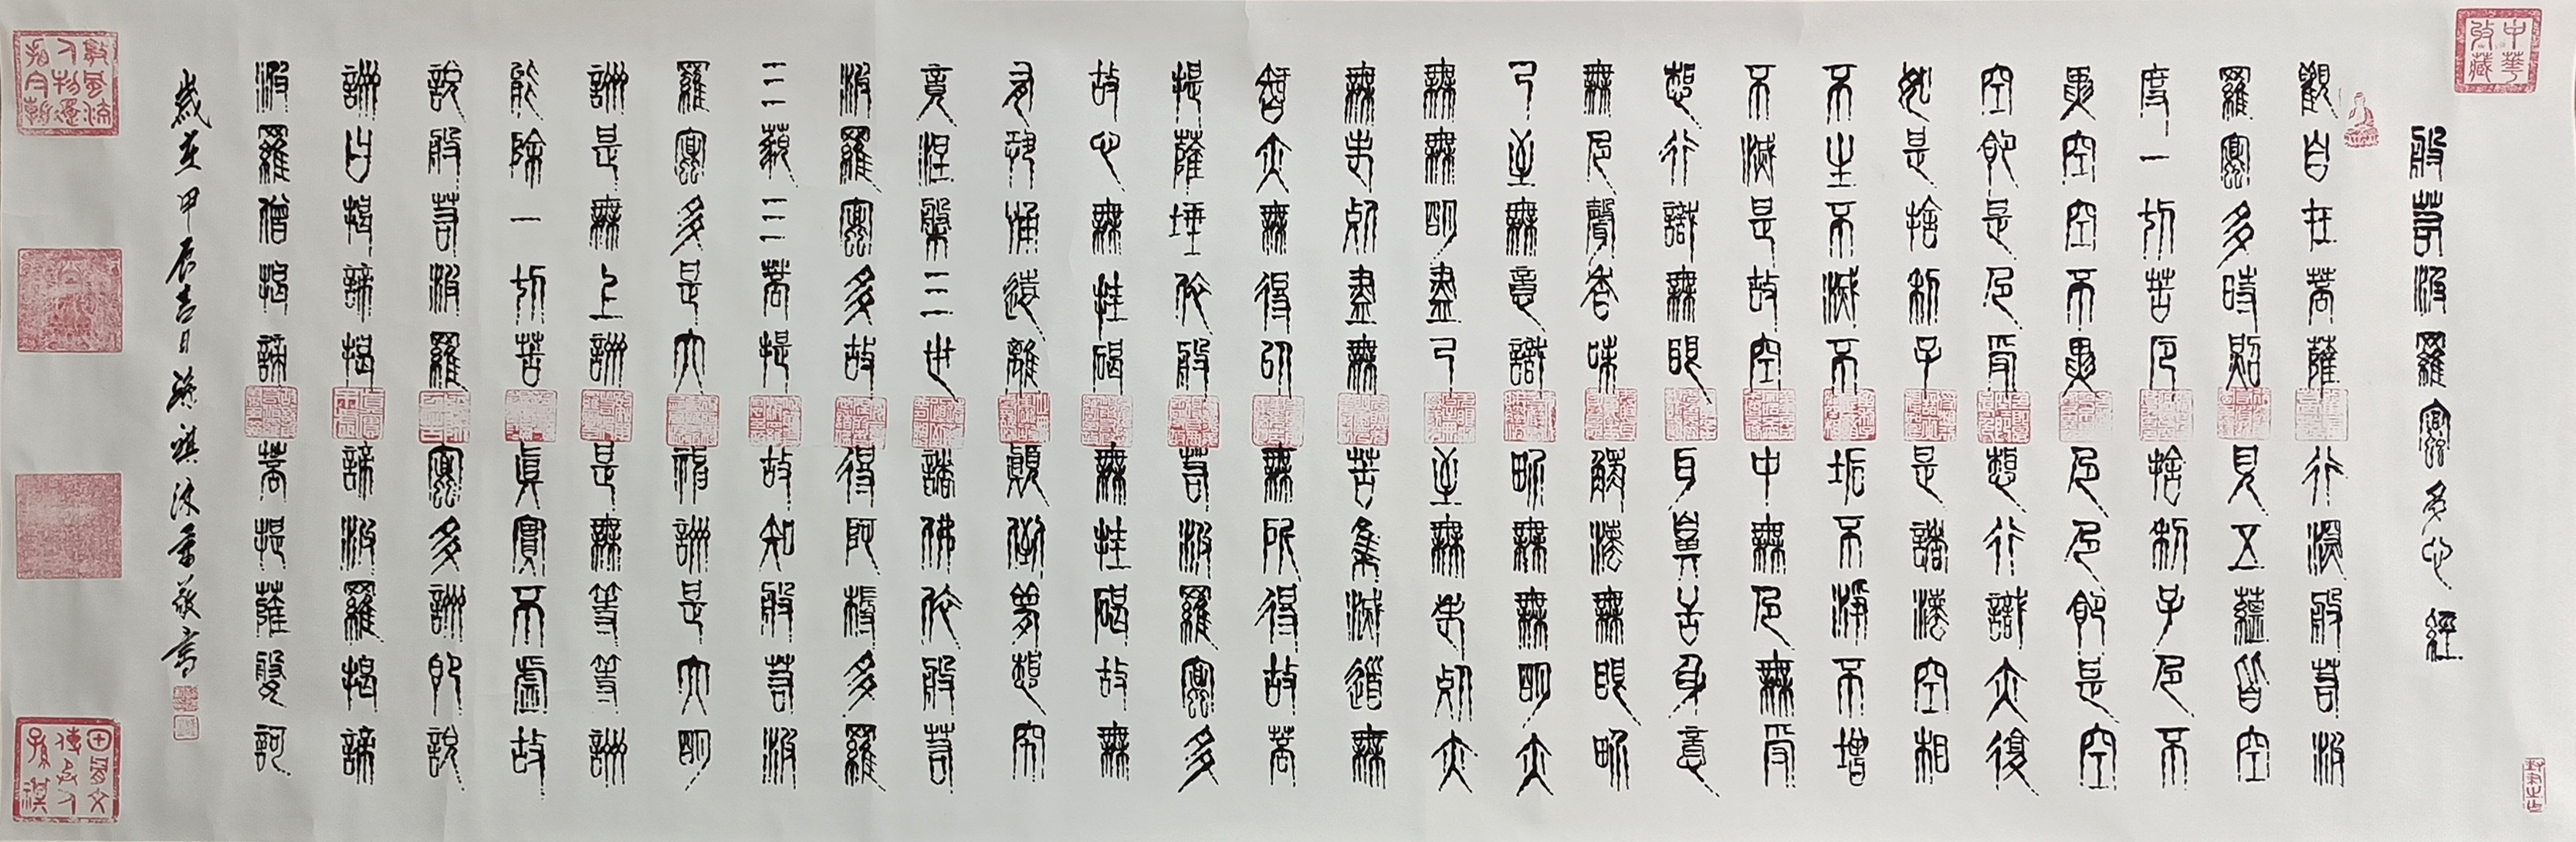 中華收藏
般若波羅蜜多心經
觀自在菩薩行深般若波
羅蜜多時照見五蘊皆空
度一切苦厄捨利子色不
異空空不異色色即是空
空即是色受想行識亦復
如是捨利子是諸法空相
不生不滅不垢不淨不增
不減是故空中無色無受
想行識無眼耳鼻舌身意
無色聲香味觸法無眼界
乃至無意識界無無明亦
無無明盡乃至無老死亦
無老死盡無苦集滅道無
智亦無得以無所得故菩
提薩埵依般若波羅蜜多
故心無挂礙無挂礙故無
有恐怖遠離顛倒夢想究
竟涅槃三世諸佛依般若
波羅蜜多故得阿耨多羅
三藐三菩提故知般若波
羅蜜多是大神咒是大明
咒是無上咒是無等等咒
能除一切苦真實不虛故
說般若波羅蜜多咒即說
咒曰揭諦揭諦波羅揭諦
波羅僧揭諦菩提薩婆訶
歲在甲辰吉日 敬書
數風流人物還看今朝